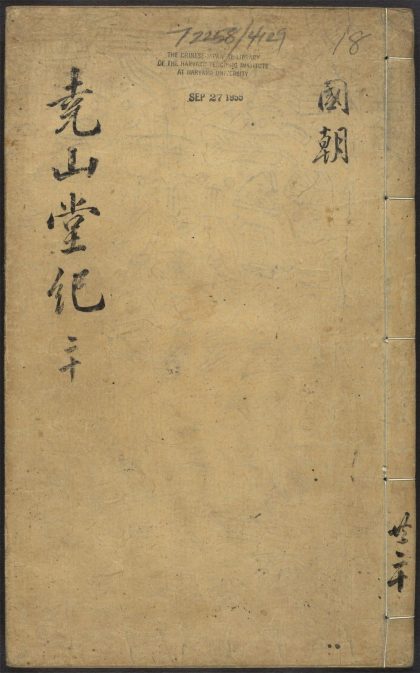 T2258/4129
18
THE CHINESE-JAPANESE LIBRARY
OF THE HARVARD-YENCHING INSTITUTE
AT HARVARD UNIVERSITY
SEP 27 1955
國朝
尭山堂纪
二十
共二十